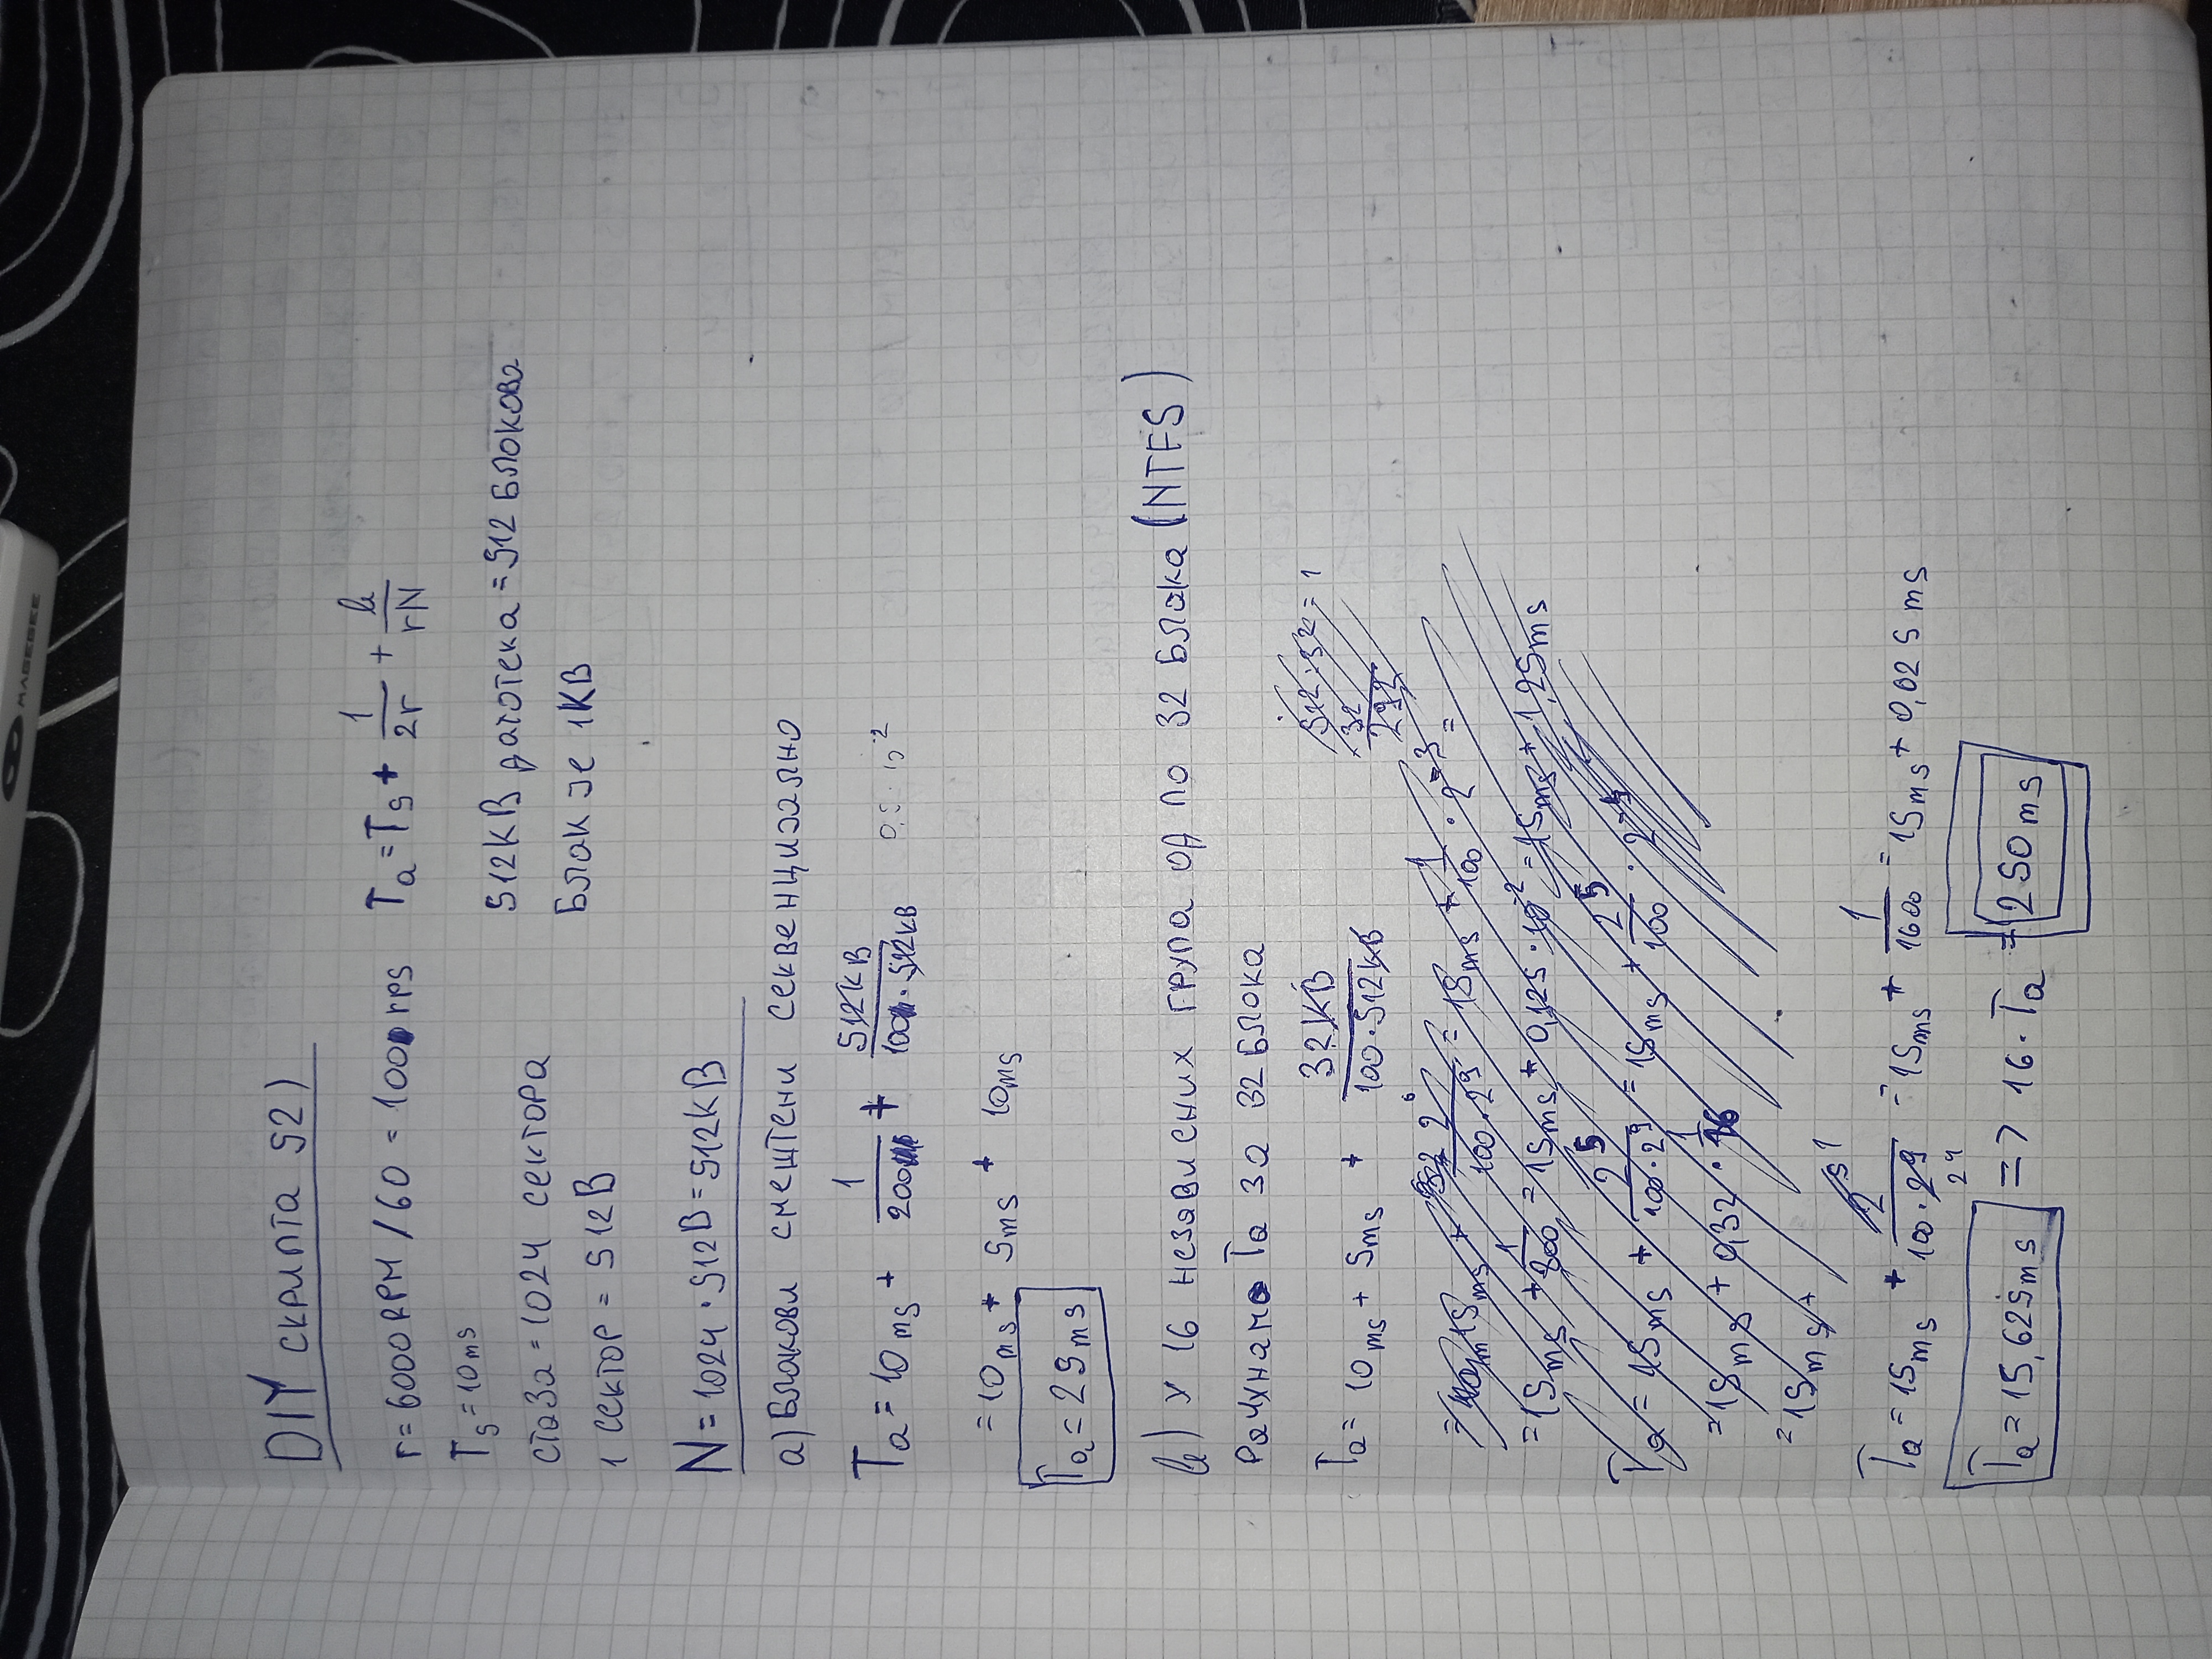 MAGEGEE
DIY скрипта 52)
r = 6000 RPM / 60 = 100 rps
T_s = 10 ms
стаза = 1024 сектора
1 сектор = 512 B
T_a = T_s + 1/2r + b/rN
512KB датотека = 512 блокова
Блок је 1KB
N = 1024 · 512 B = 512KB
a) Блокови смештени секвенцијално
T_a = 10 ms + 1/200 + 512KB/100 · 512KB 0,5 · 10^-2
= 10 ms + 5 ms + 10 ms
T_a = 25 ms
b) У 16 независних група од по 32 блока (NTFS)
Рачунамо T_a за 32 блока
T_a = 10 ms + 5 ms + 32KB/100 · 512KB
= 15 ms + 1/800 = 15 ms + 0,125 · 10^-2 = 15 ms + 1,25 ms
T_a = 15 ms + 2^5/100 · 2^9 = 15 ms + 2^5/100 ·
= 15 ms + 0,32 · 1/16
= 15 ms +
T_a = 15 ms + 2^5 1/100 · 2^9 2^4 = 15 ms + 1/1600 = 15 ms + 0,625 ms
T_a = 15,625 ms => 16 · T_a = 250 ms